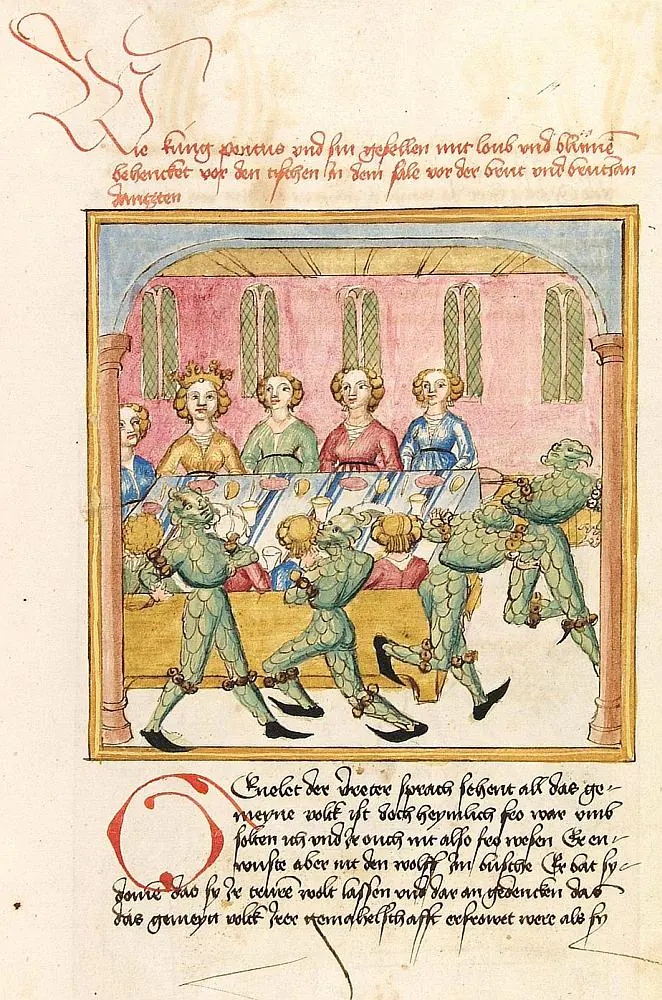 Wie kung pontus vnd sin gesellen mit loub vnd blůmē
behencket vor den tischen in dem sale vor der brut vnd brutgan
dantzten
Genelet der vreter sprach sehent all das ge-
meyne volck ist doch heymlich fro war vmb
solten ich vnd ir ouch nit also fro wesen Er en-
wuste aber nit den wolff Im busche Er bat sy-
donie das sy Ir truren wolt lassen vnd dar an gedencken das
das gemeyn volck Irer gemahelschafft erfrowet were als sy